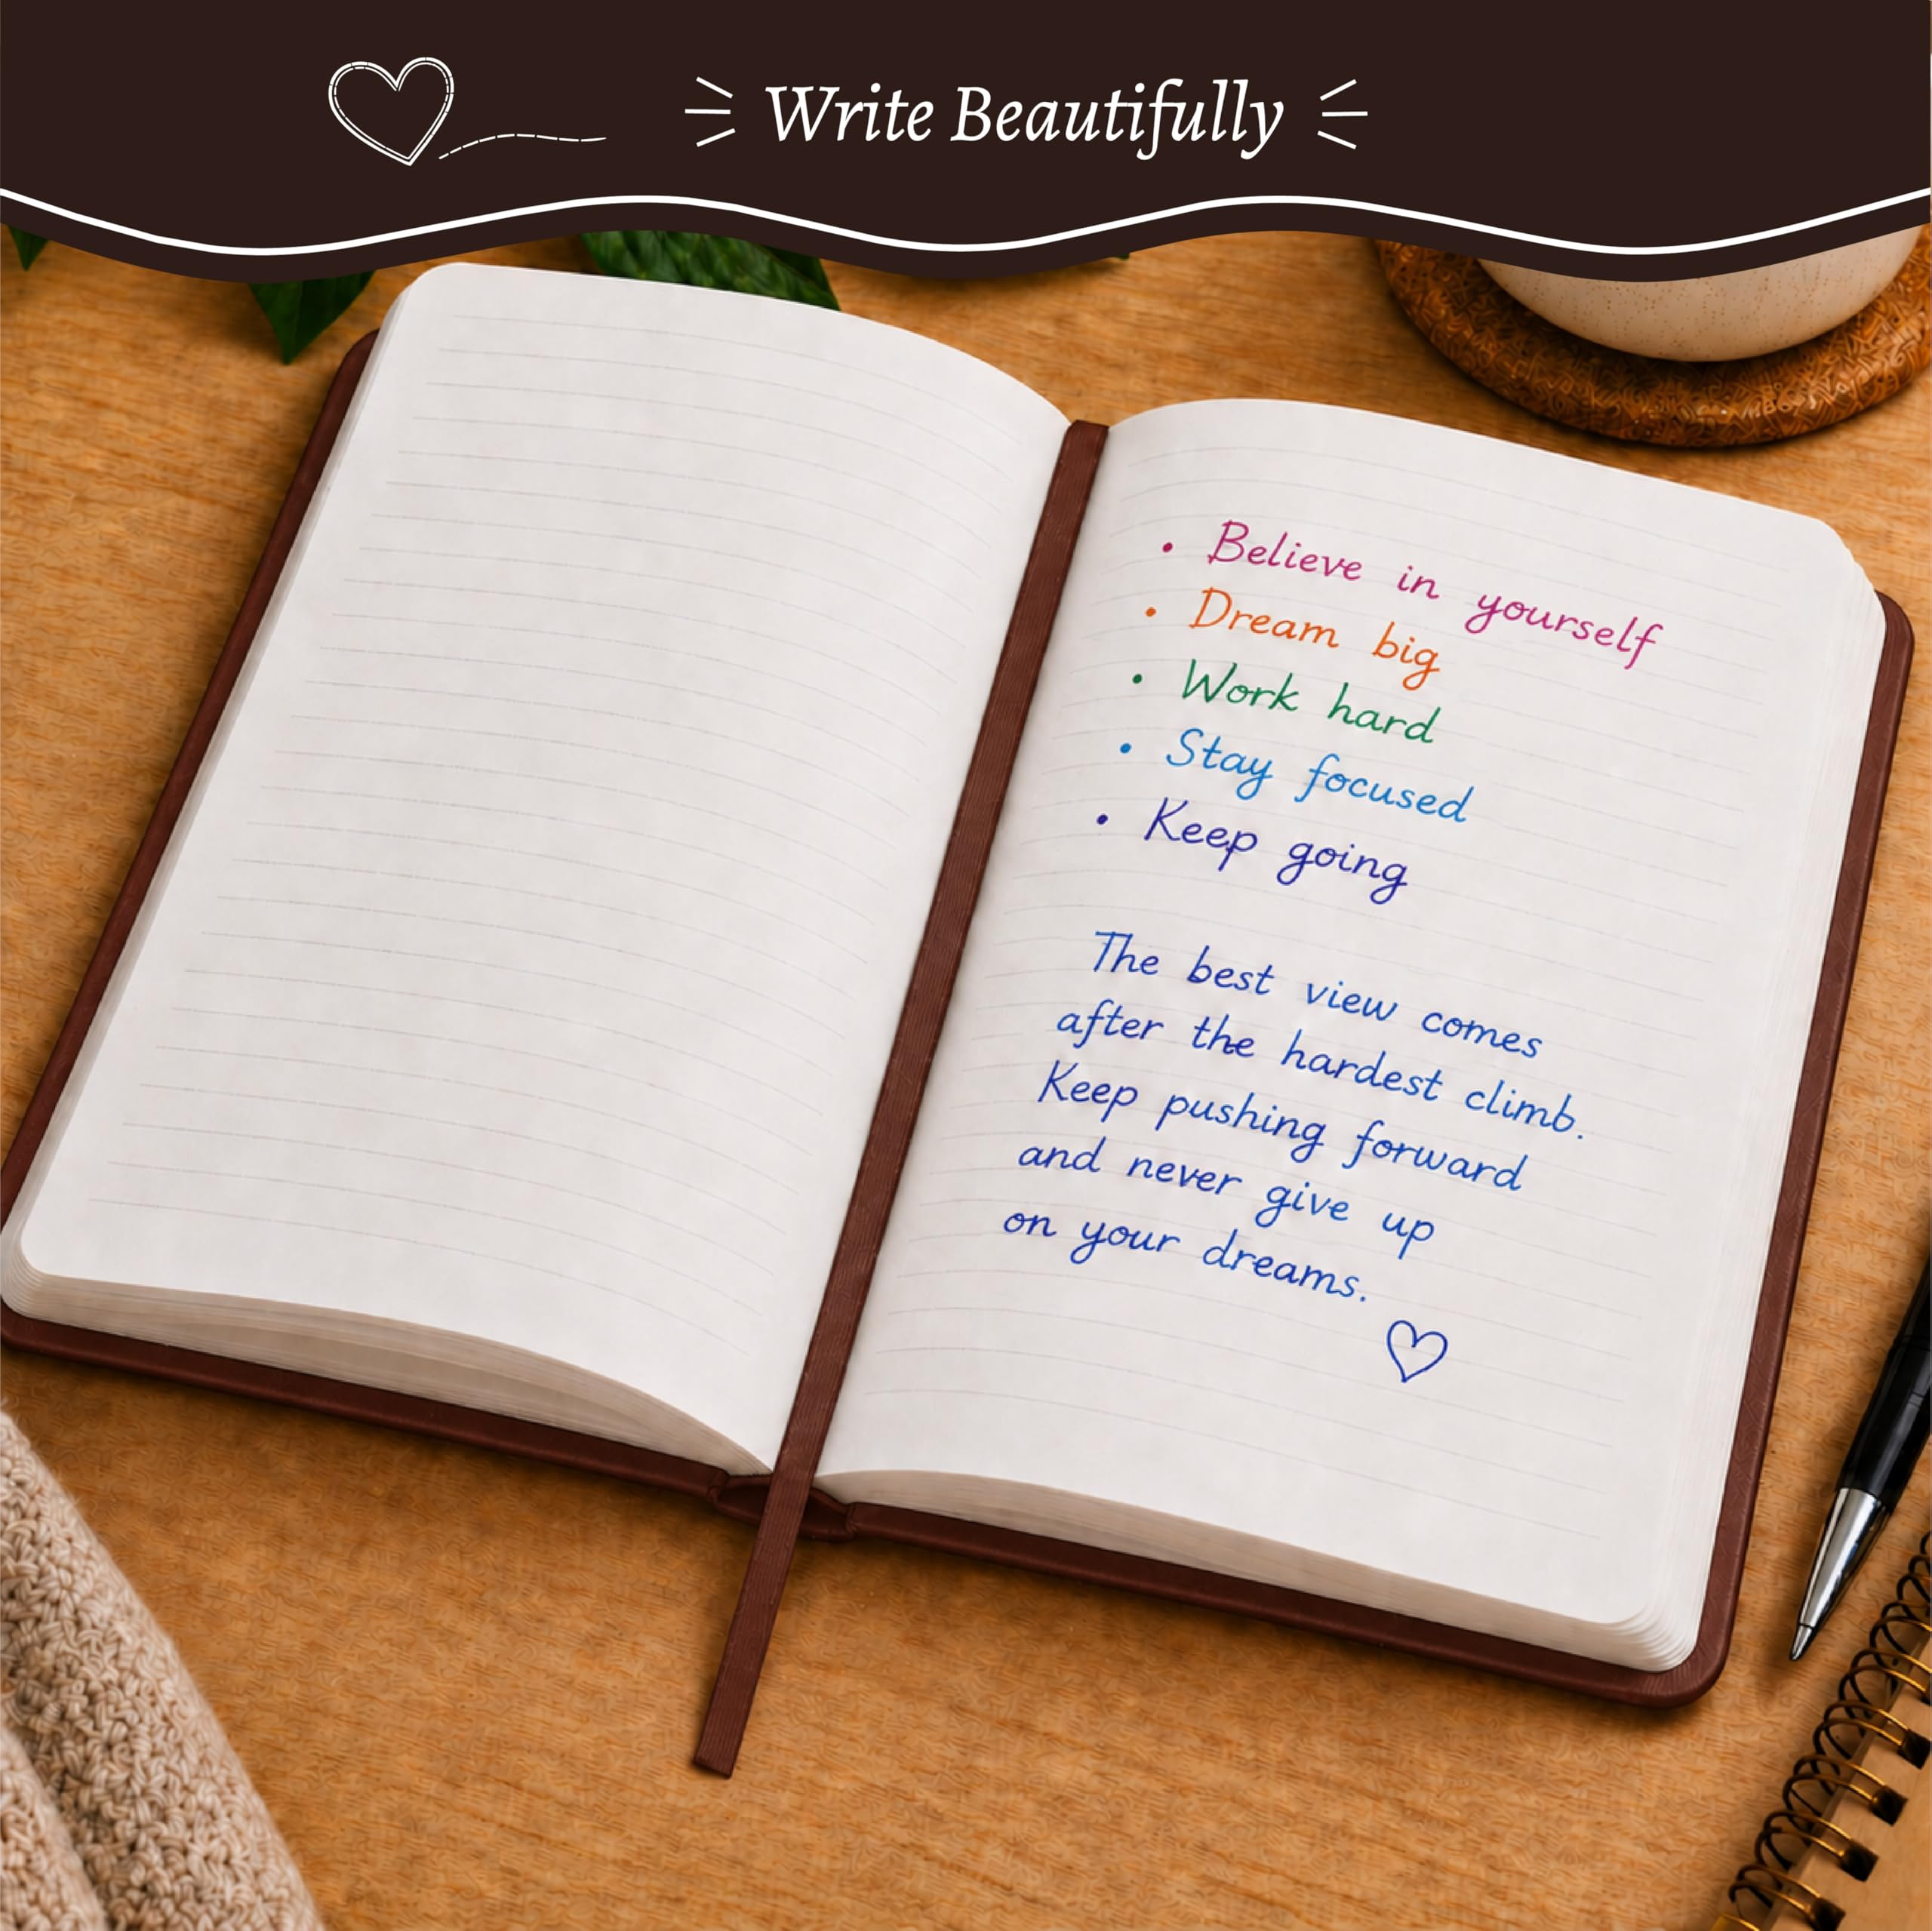 Write Beautifully
• Believe in yourself
• Dream big
• Work hard
• Stay focused
• Keep going
The best view comes
after the hardest climb.
Keep pushing forward
and never give up
on your dreams.